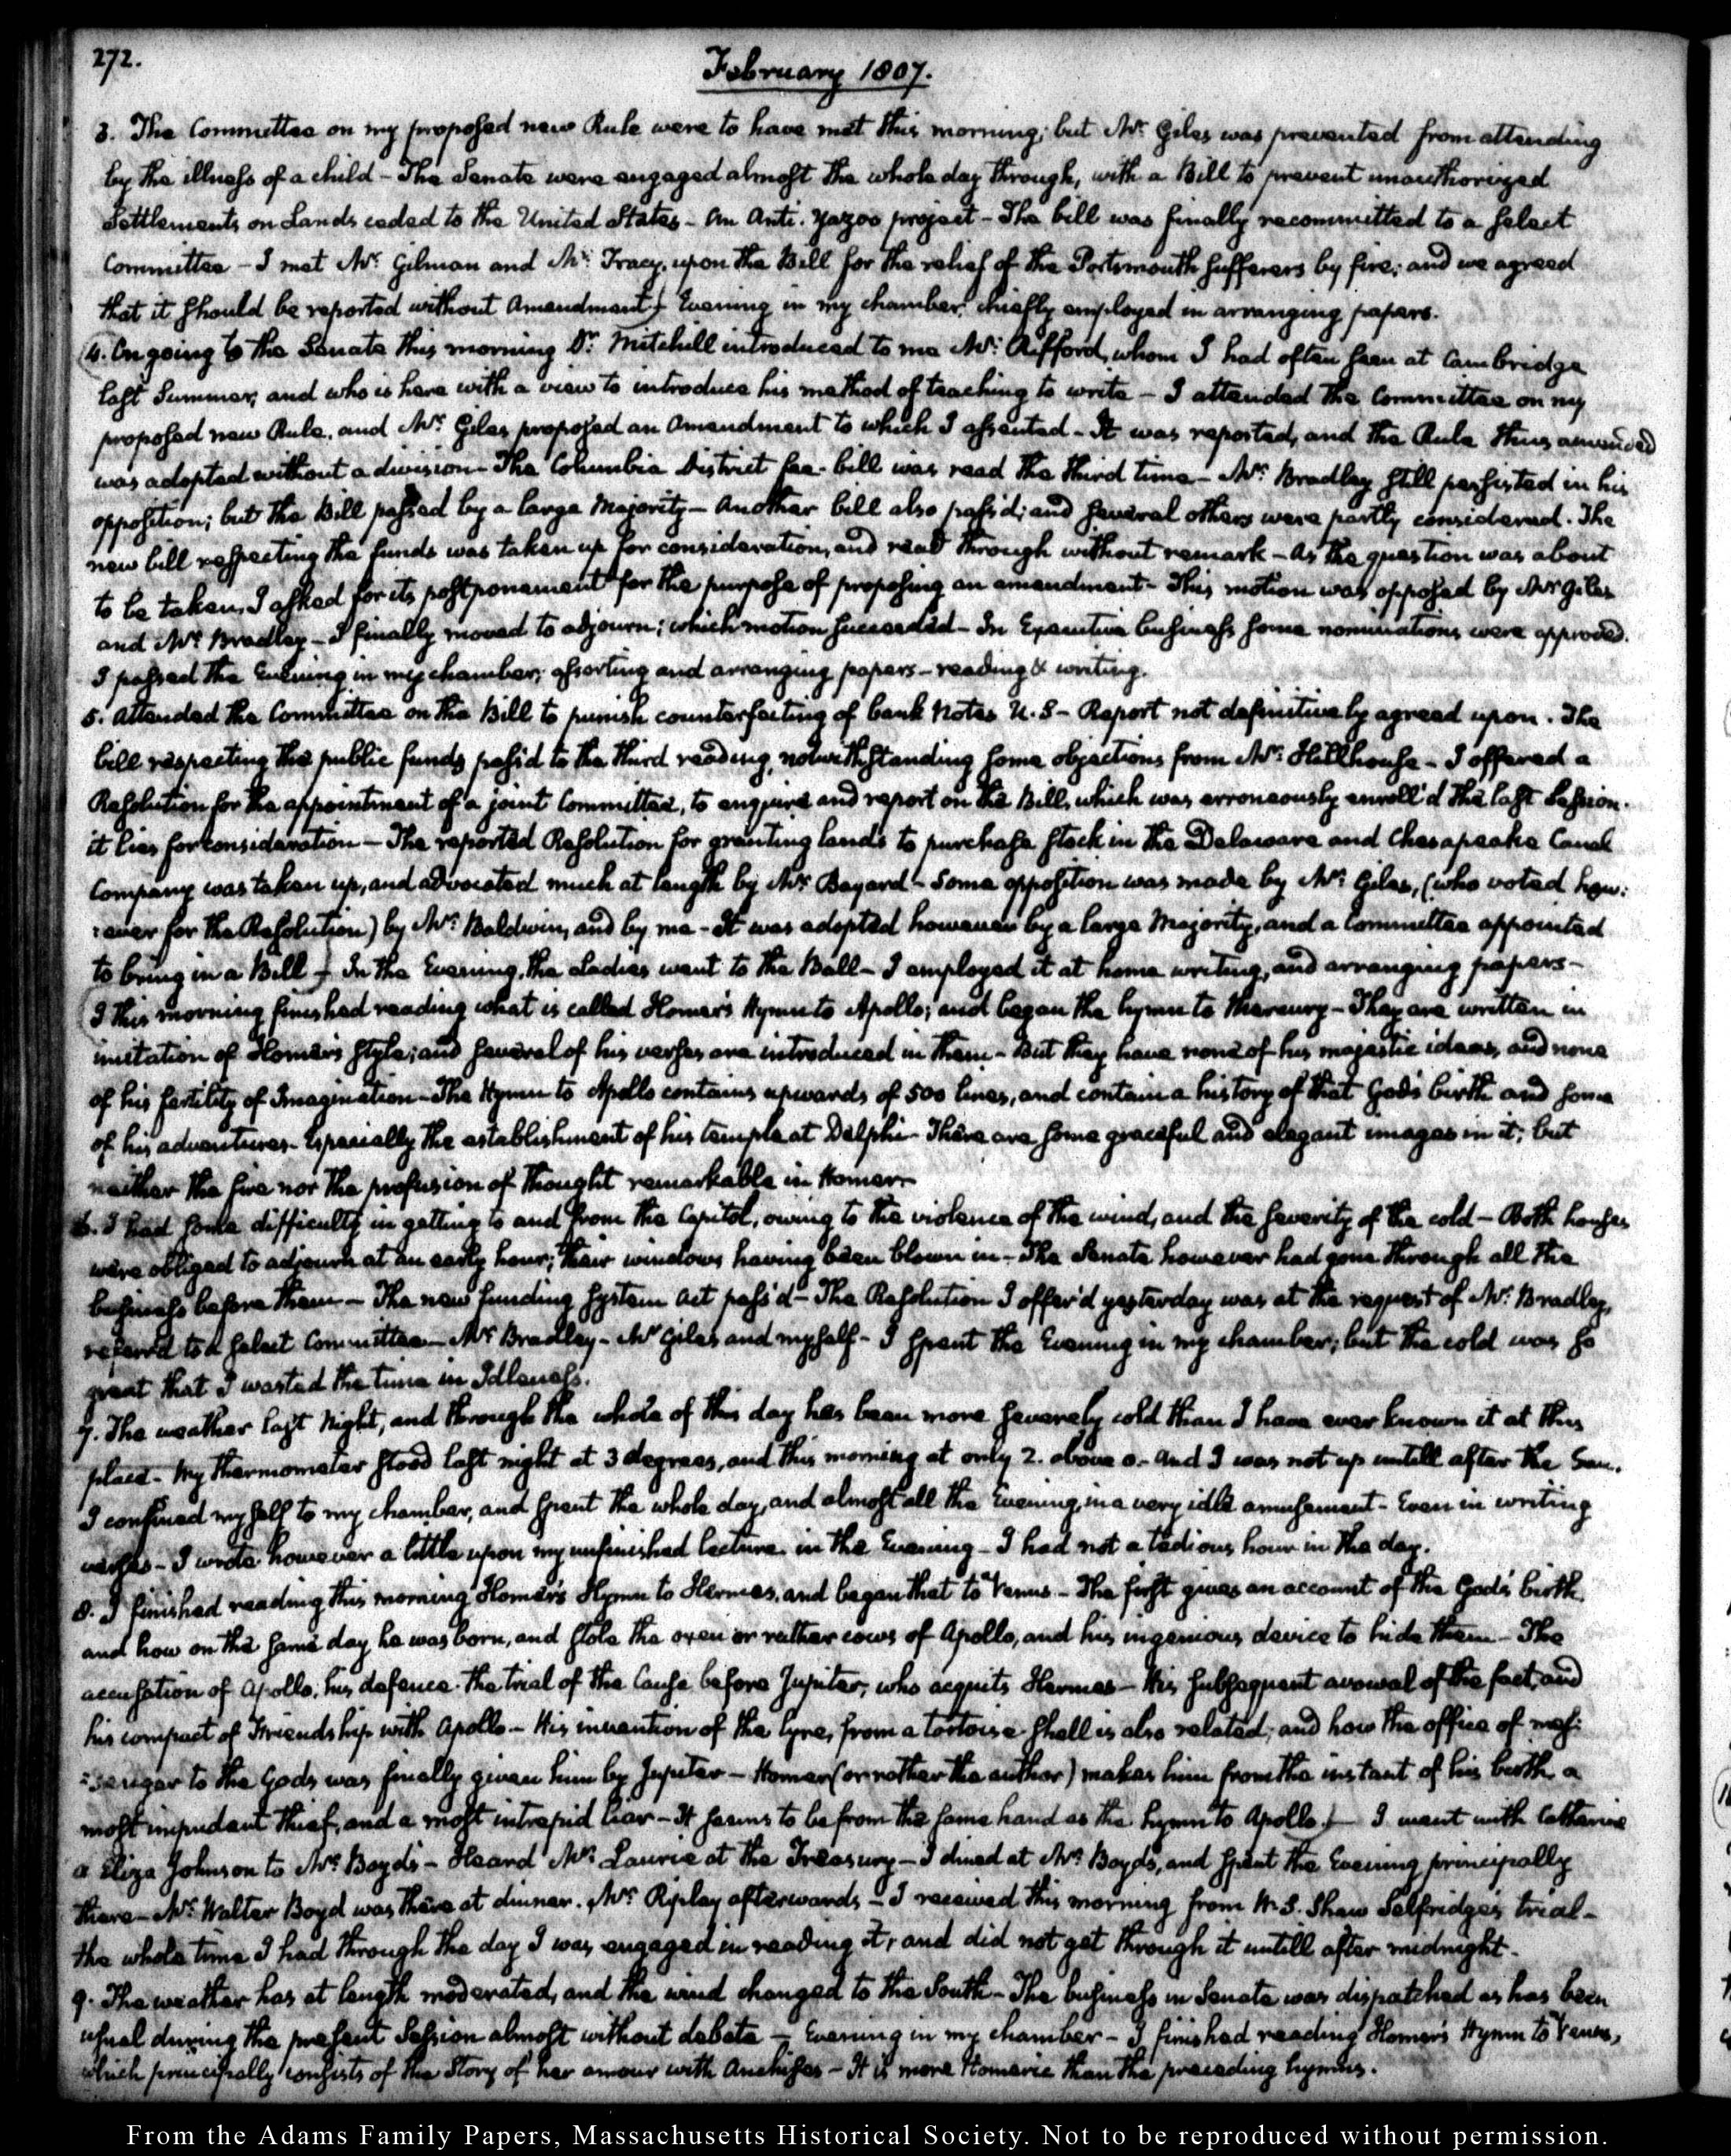 272.
February 1807.
3. The Committee on my proposed new Rule were to have met this morning; but Mr. Giles was prevented from attending
by the illness of a child — The Senate were engaged almost the whole day through, with a Bill to prevent unauthorized
Settlements on Lands ceded to the United States — An Anti-Yazoo project — The bill was finally recommitted to a select
Committee — I met Mr. Gilman and Mr. Tracy, upon the Bill for the relief of the Portsmouth sufferers by fire; and we agreed
that it should be reported without Amendment. Evening in my chamber, chiefly employed in arranging papers.
4. On going to the Senate this morning Dr. Mitchill introduced to me Mr. Rifford, whom I had often seen at Cambridge
last Summer, and who is here with a view to introduce his method of teaching to write — I attended the Committee on my
proposed new Rule, and Mr. Giles proposed an Amendment to which I assented — It was reported, and the Rule thus amended
was adopted without a division — The Columbia District fee-bill was read the third time — Mr. Bradley still persisted in his
opposition; but the Bill passed by a large Majority — Another bill also pass'd; and several others were partly considered. The
new bill respecting the funds was taken up for consideration, and read through without remark — As the question was about
to be taken, I asked for its postponement for the purpose of proposing an amendment — This motion was opposed by Mr Giles
and Mr. Bradley — I finally moved to adjourn; which motion succeeded — In Executive business some nominations were approved.
I passed the Evening in my chamber; assorting and arranging papers — reading & writing.
5. Attended the Committee on the Bill to punish counterfeiting of bank Notes U.S — Report not definitively agreed upon. The
bill respecting the public funds pass'd to the third reading, notwithstanding some objections from Mr. Hillhouse — I offered a
Resolution for the appointment of a joint Committee, to enquire and report on the Bill, which was erroneously enroll'd the last Session.
it lies for consideration — The reported Resolution for granting lands to purchase stock in the Delaware and Chesapeake Canal
Company was taken up, and advocated much at length by Mr Bayard — Some opposition was made by Mr. Giles, (who voted how:
:ever for the Resolution) by Mr. Baldwin, and by me — It was adopted however by a large Majority, and a Committee appointed
to bring in a Bill — In the Evening, the Ladies went to the Ball — I employed it at home writing, and arranging papers —
I this morning finished reading what is called Homer's Hymn to Apollo; and began the hymn to Mercury — They are written in
imitation of Homer's style; and several of his verses are introduced in them — But they have none of his majestic ideas, and none
of his fertility of Imagination — The Hymn to Apollo contains upwards of 500 lines, and contain a history of that God's birth and some
of his adventures — Especially the establishment of his temple at Delphi — There are some graceful and elegant images in it; but
neither the fire nor the profusion of thought remarkable in Homer.
6. I had some difficulty in getting to and from the Capitol, owing to the violence of the wind, and the severity of the cold — Both houses
were obliged to adjourn at an early hour; their windows having been blown in — The Senate however had gone through all the
business before them — The new funding system Act pass'd — The Resolution I offer'd yesterday was at the request of Mr. Bradley,
referr'd to a select Committee — Mr. Bradley — Mr Giles and myself — I spent the Evening in my chamber; but the cold was so
great that I wasted the time in Idleness.
7. The weather last Night, and through the whole of this day has been more severely cold than I have ever known it at this
place — My thermometer stood last night at 3 degrees, and this morning at only 2. above 0 — and I was not up untill after the Sun.
I confined myself to my chamber, and spent the whole day, and almost all the Evening, in a very idle amusement — Even in writing
verses — I wrote however a little upon my unfinished lecture, in the Evening — I had not a tedious hour in the day.
8. I finished reading this morning Homer's Hymn to Hermes, and began that to Venus — The first gives an account of the God's birth,
and how on the same day he was born, and stole the oxen or rather cows of Apollo, and his ingenious device to hide them — The
accusation of Apollo, his defence. The trial of the Cause before Jupiter, who acquits Hermes — His subsequent avowal of the fact, and
his compact of Friendship with Apollo — His invention of the lyre, from a tortoise shell is also related; and how the office of mes:
:senger to the Gods was finally given him by Jupiter — Homer (or rather the author) makes him from the instant of his birth, a
most impudent thief, and a most intrepid liar — It seems to be from the same hand as the hymn to Apollo. — I went with Catharine
& Eliza Johnson to Mr. Boyd's — Heard Mr. Laurie at the Treasury — I dined at Mr. Boyd's, and spent the Evening principally
there — Mr. Walter Boyd was there at dinner. Mr. Ripley afterwards — I received this morning from W. S. Shaw Selfridge's trial —
the whole time I had through the day I was engaged in reading it, and did not get through it untill after midnight.
9. The weather has at length moderated, and the wind changed to the South — The business in Senate was dispatched as has been
usual during the present Session almost without debate — Evening in my chamber — I finished reading Homer's Hymn to Venus,
which principally consists of the story of her amour with Anchises — It is more Homeric than the preceding hymns.
From the Adams Family Papers, Massachusetts Historical Society. Not to be reproduced without permission.